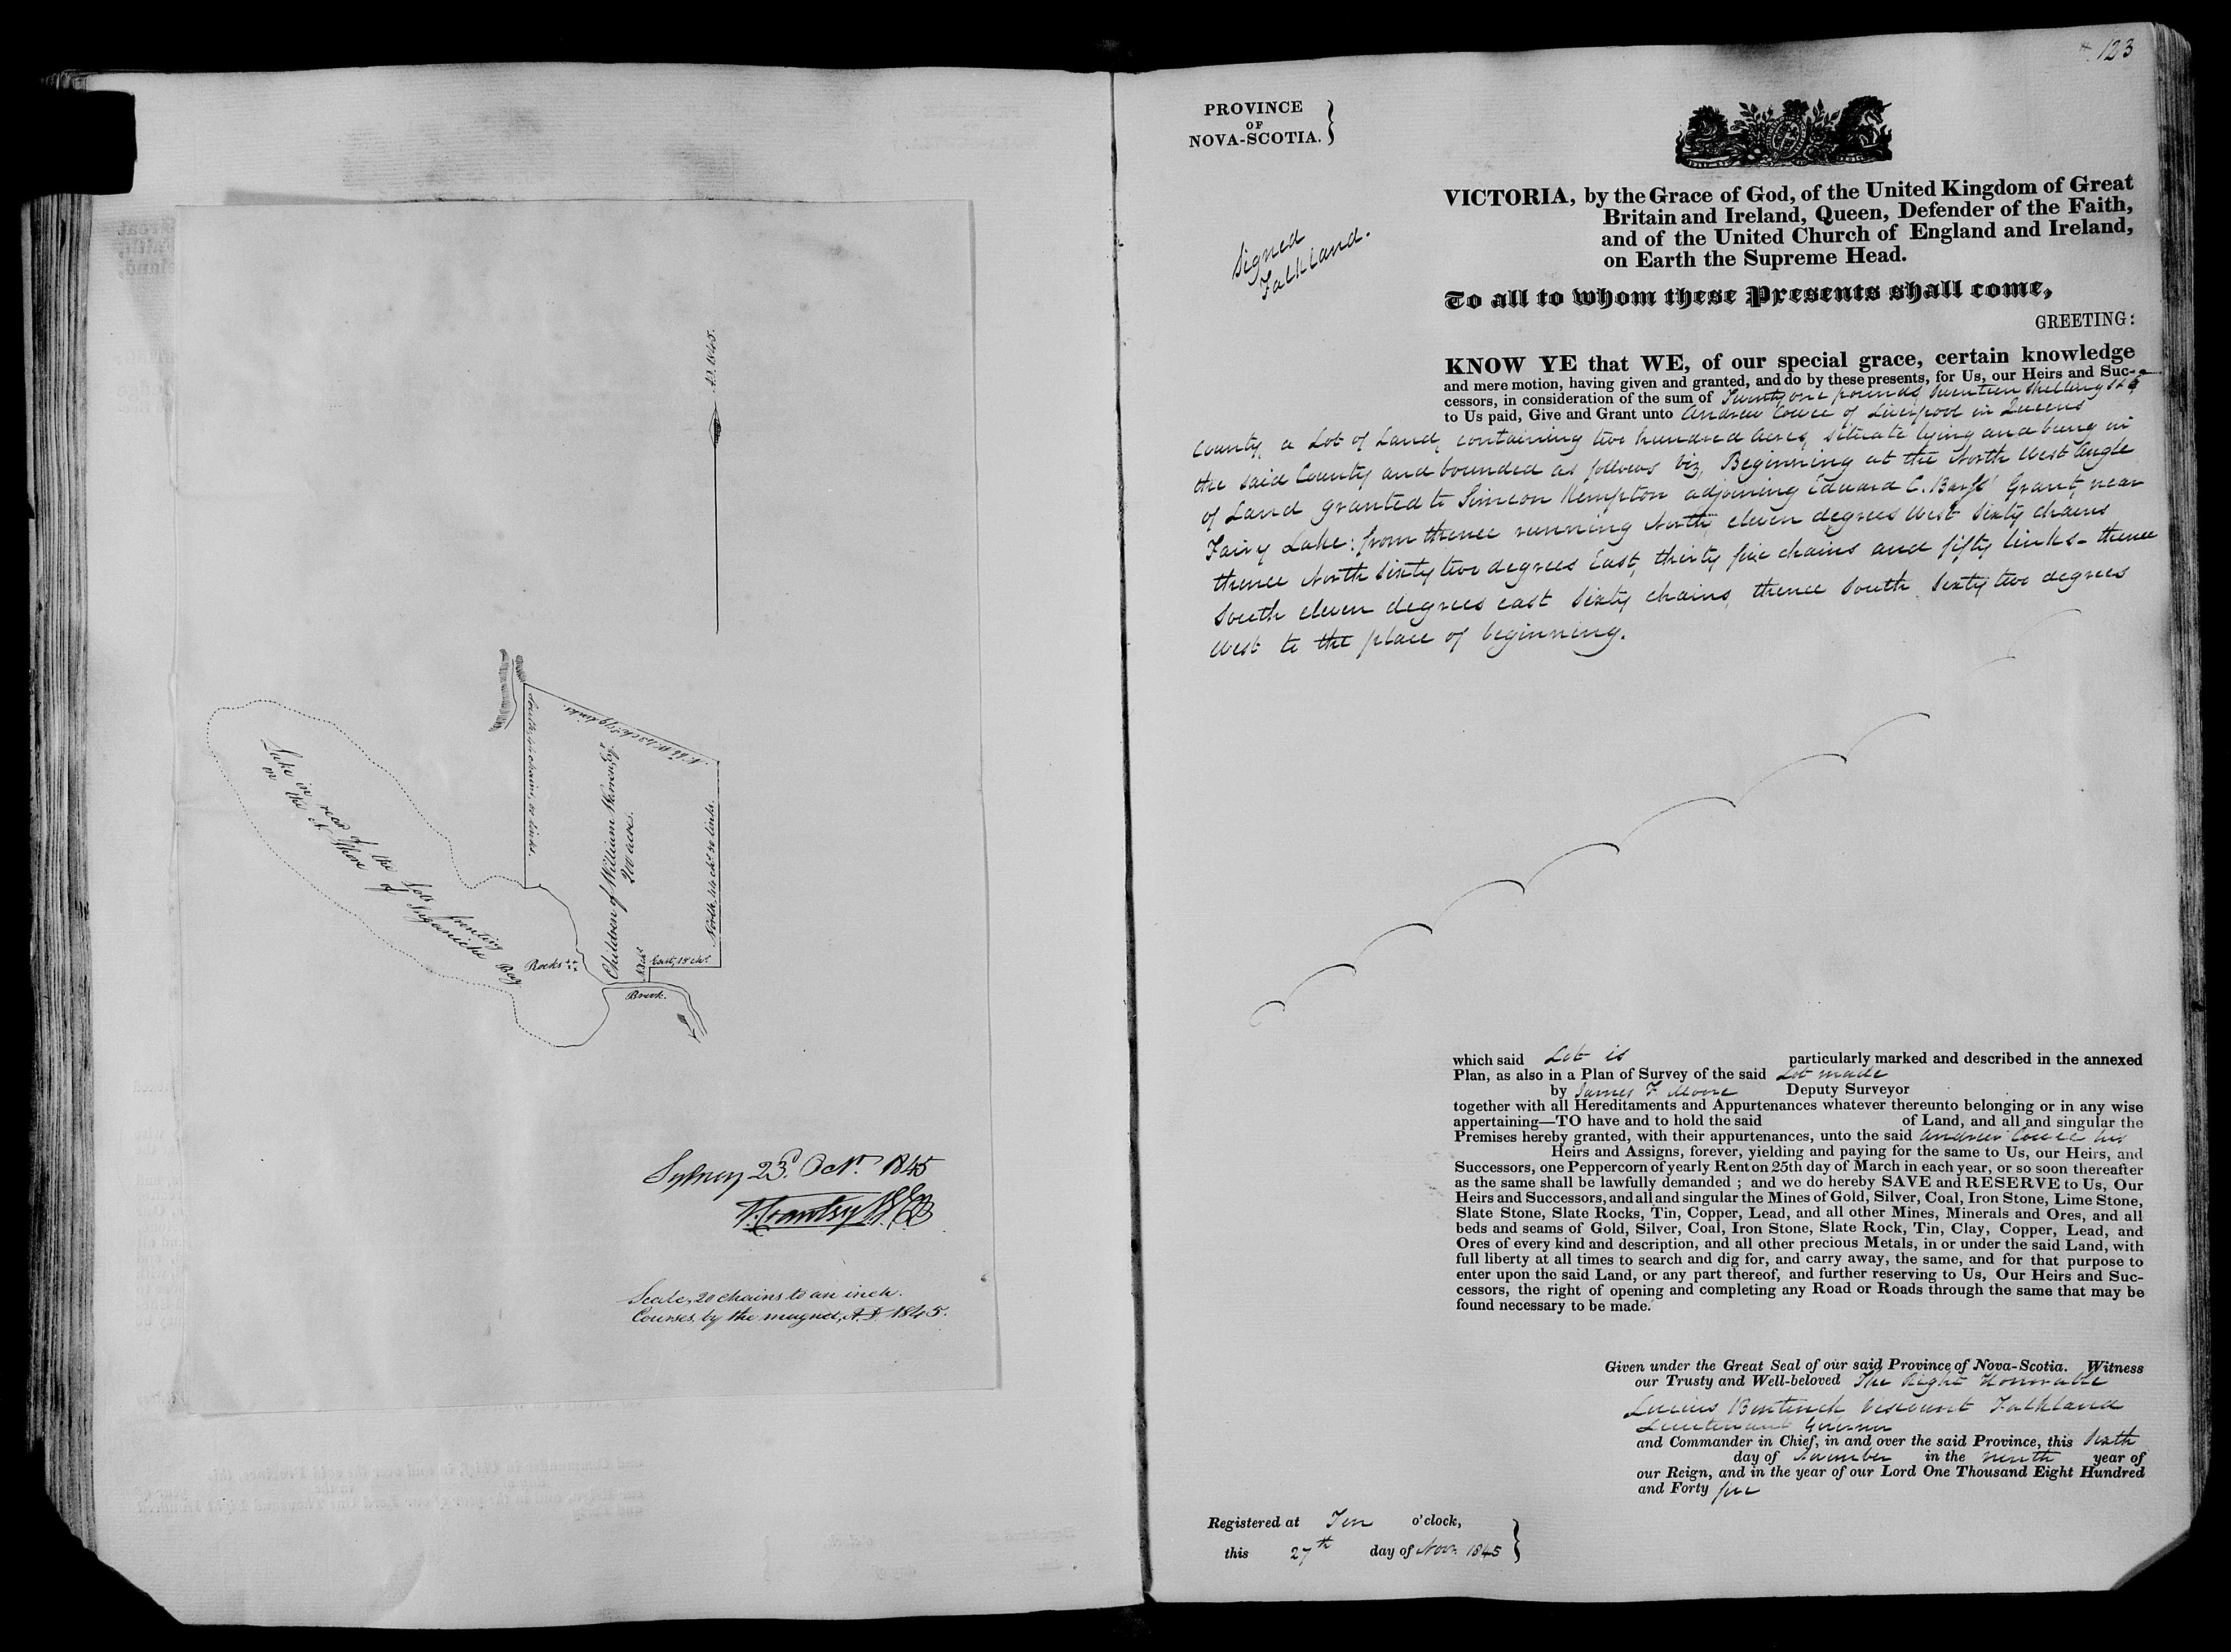 A.D. 1845.
South, 44 chains, 50 links.
N. 66 W. 43 chs 79 links.
Children of William Esqr
200 acres.
North, 44 chs 50 links.
East, 18 chs
Lake in rear of the lots fronting
on the N Shore of Inganiche Bay
Rocks
Brook.
Sydney 23d. Octr. 1845
Scale, 20 chains to an inch.
Courses, by the magnet, A.D. 1845.
123
PROVINCE
OF
NOVA-SCOTIA.
Signed
Falkland.
VICTORIA, by the Grace of God, of the United Kingdom of Great
Britain and Ireland, Queen, Defender of the Faith,
and of the United Church of England and Ireland,
on Earth the Supreme Head.
To all to whom these Presents shall come,
GREETING:
KNOW YE that WE, of our special grace, certain knowledge
and mere motion, having given and granted, and do by these presents, for Us, our Heirs and Suc-
cessors, in consideration of the sum of Twenty one pounds Seventeen Shillings
to Us paid, Give and Grant unto Andrew Cowie of Liverpool in Queens
County, a Lot of Land, containing two hundred Acres, situate lying and being in
the said County and bounded as follows viz, Beginning at the North West Angle
of Land granted to Simeon Kempton adjoining Edward C. Barss' Grant, near
Fairy Lake: from thence running North eleven degrees West Sixty chains
thence North sixty two degrees East, thirty five chains and fifty links - thence
South eleven degrees east Sixty chains, thence South Sixty two degrees
West to the place of beginning.
which said Lot is particularly marked and described in the annexed
Plan, as also in a Plan of Survey of the said Lot made
by James F. Moore Deputy Surveyor
together with all Hereditaments and Appurtenances whatever thereunto belonging or in any wise
appertaining—TO have and to hold the said of Land, and all and singular the
Premises hereby granted, with their appurtenances, unto the said Andrew Cowie his
Heirs and Assigns, forever, yielding and paying for the same to Us, our Heirs, and
Successors, one Peppercorn of yearly Rent on 25th day of March in each year, or so soon thereafter
as the same shall be lawfully demanded ; and we do hereby SAVE and RESERVE to Us, Our
Heirs and Successors, and all and singular the Mines of Gold, Silver, Coal, Iron Stone, Lime Stone,
Slate Stone, Slate Rocks, Tin, Copper, Lead, and all other Mines, Minerals and Ores, and all
beds and seams of Gold, Silver, Coal, Iron Stone, Slate Rock, Tin, Clay, Copper, Lead, and
Ores of every kind and description, and all other precious Metals, in or under the said Land, with
full liberty at all times to search and dig for, and carry away, the same, and for that purpose to
enter upon the said Land, or any part thereof, and further reserving to Us, Our Heirs and Suc-
cessors, the right of opening and completing any Road or Roads through the same that may be
found necessary to be made.
Given under the Great Seal of our said Province of Nova-Scotia. Witness
our Trusty and Well-beloved The Right Honorable
Lucius Bentinck Viscount Falkland
Lieutenant Governor
and Commander in Chief, in and over the said Province, this Sixth
day of November in the ninth year of
our Reign, and in the year of our Lord One Thousand Eight Hundred
and Forty five
Registered at Ten o'clock,
this 27th day of Novr. 1845